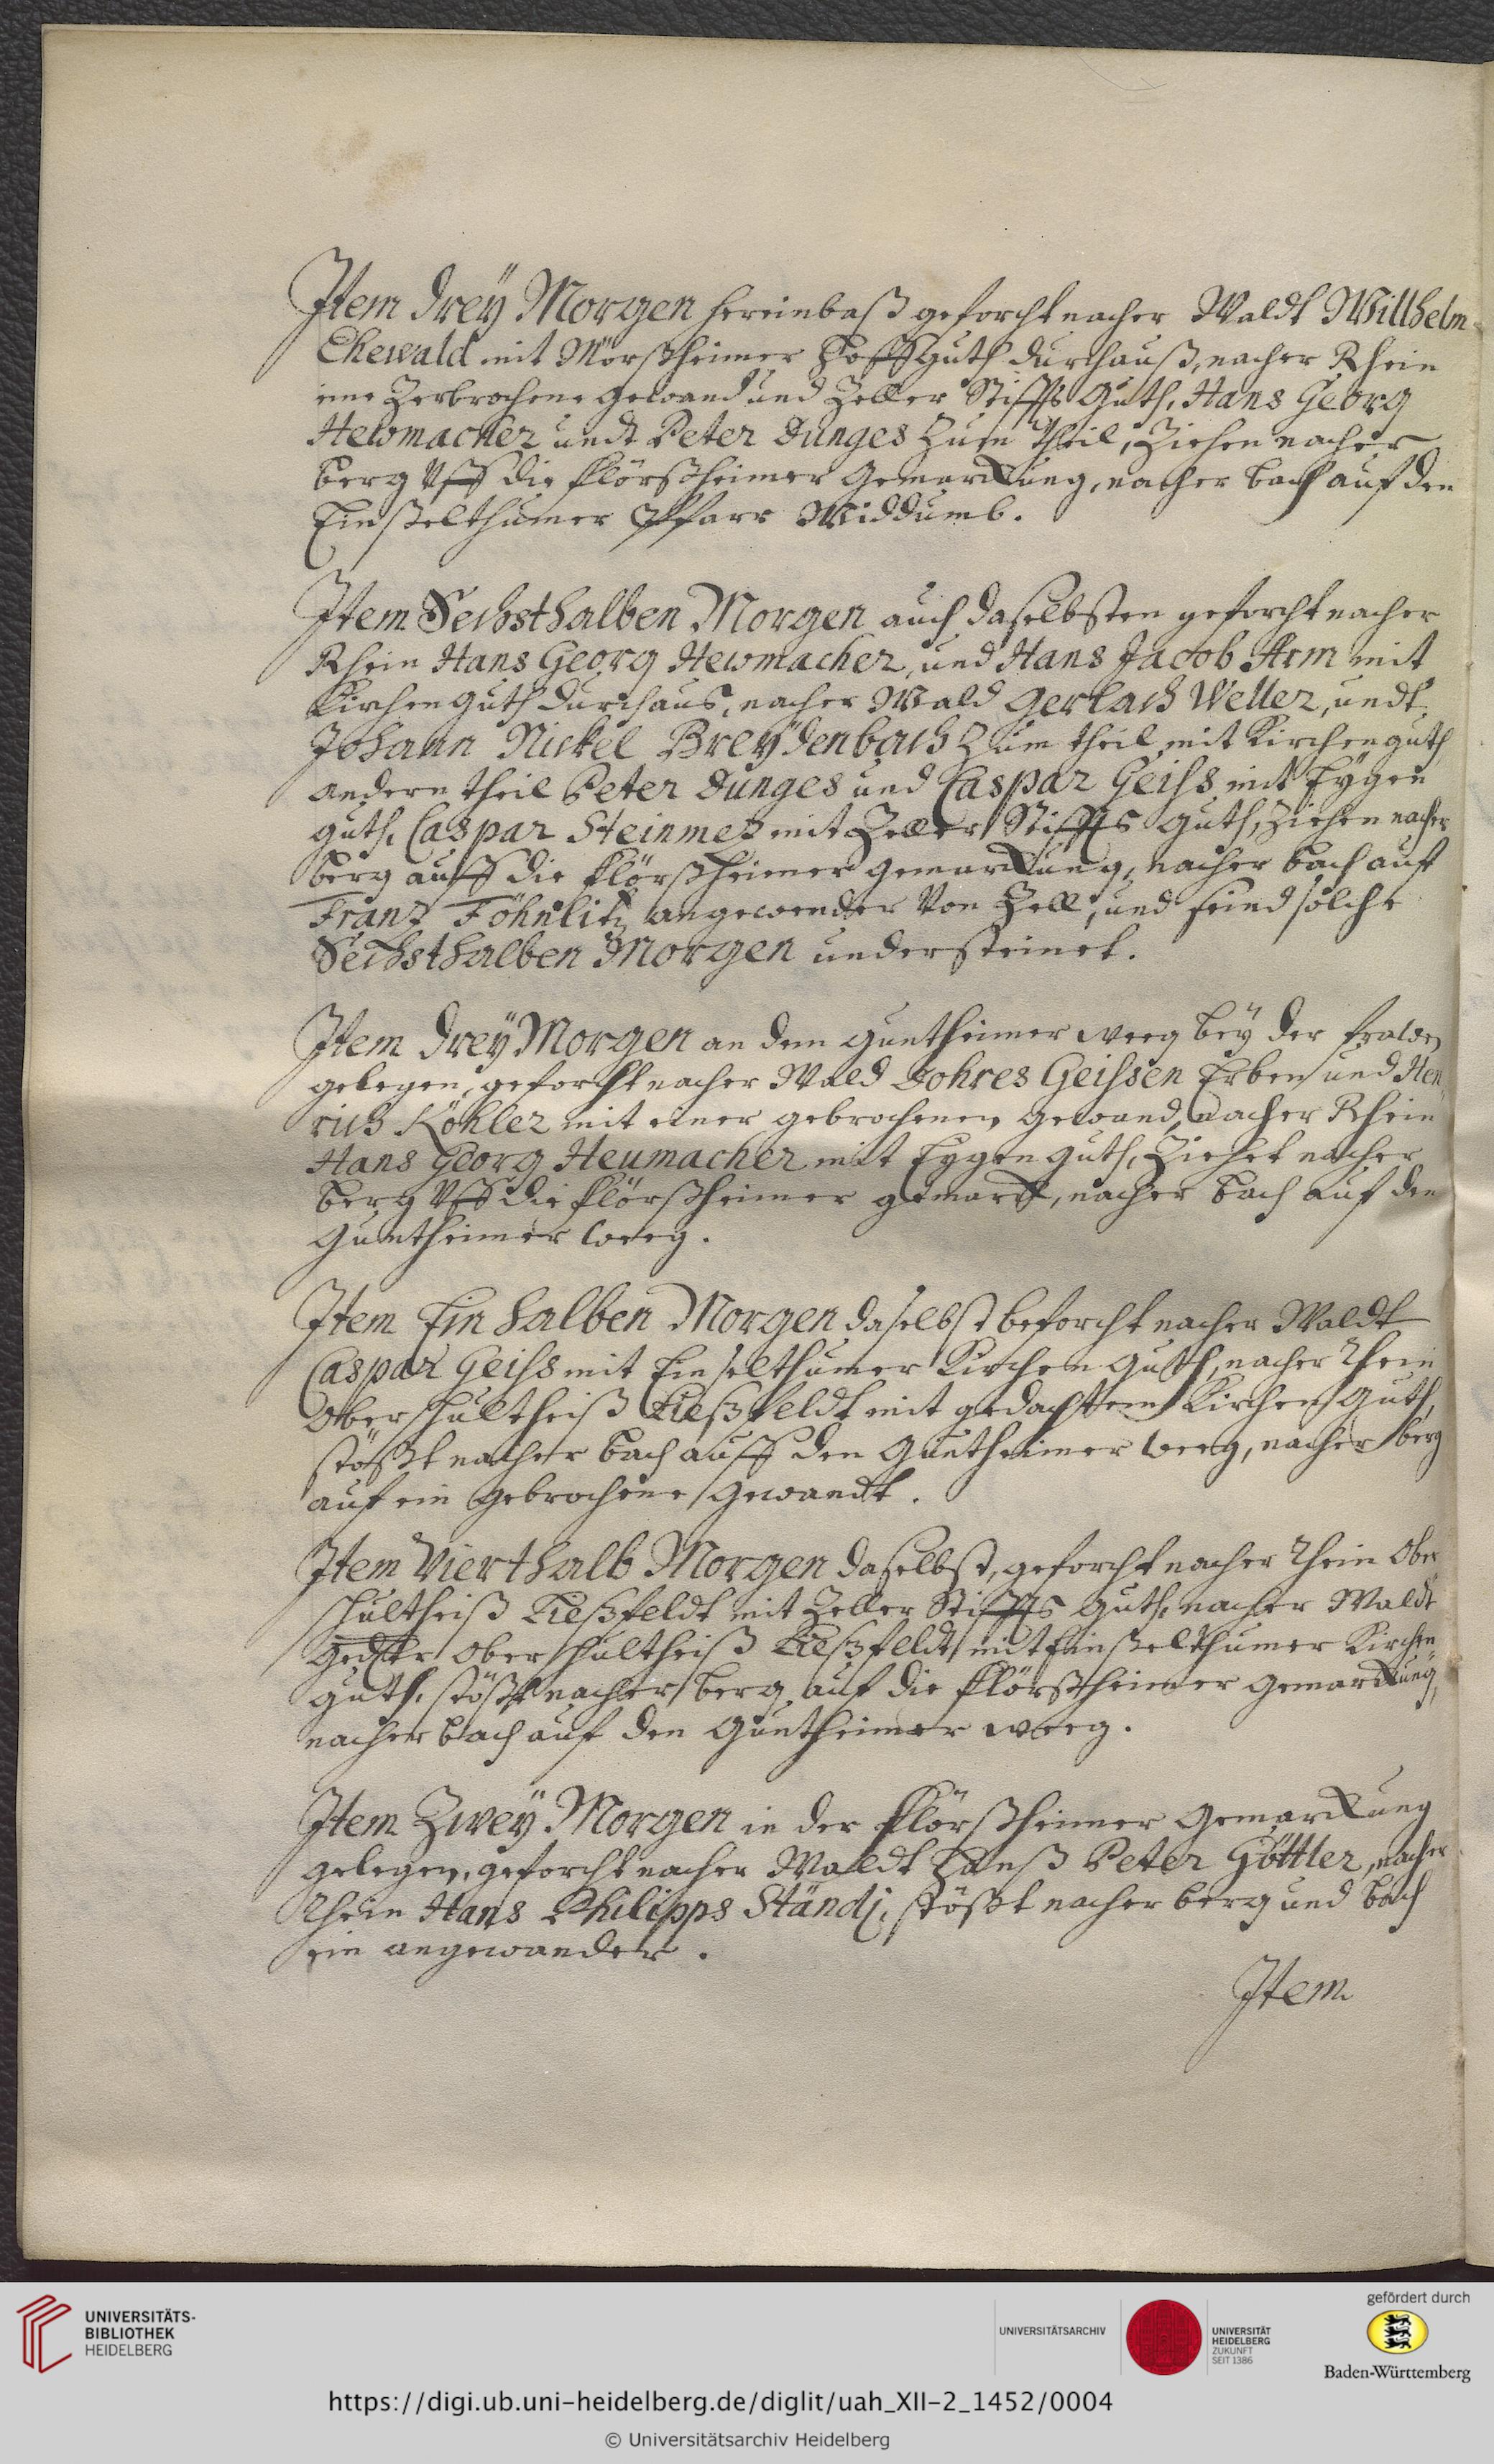 Item Dreÿ Morgen hereinbaß geforcht nacher Waldt Willhelm
Ehewald mit Mörßheimer Hoffguth durchauß, nacher Rhein
eine Zerbrochene gewand und Zeller Stiffts Guth, Hans Georg
Hewmacher undt Peter Dunges Zum Theil, Ziehen nacher
berg Uff die flörßheimer Gemarckung, nacher bach auf den
Einßelthumer Pfarr Widdumb.
Item Sechsthalben Morgen auch daselbsten geforcht nacher
Rhein Hans Georg Hewmacher, und Hans Jacob Arm mit
Kirchen guth durchaus, nacher Wald Gerlach Weller, undt
Johann Nickel Breÿdenbach Zum theil mit Kirchenguth
andern theil Peter Dunges und Caspar Geiss mit Eygen
guth, Caspar Steinmetz mit Zeller Stiffts Guth, Ziehen nacher
berg auff die flörßheimer gemarckung, nacher bach auf
Frantz Föhnlitz angewender Von Zell, und seind solche
Sechsthalben Morgen understeinet.
Item Dreÿ Morgen an dem Guntheimer weeg beÿ der
gelegen, geforcht nacher Wald Dohres Geissen Erben und Hen-
rich Köhler mit einer gebrochenen gewand, nacher Rhein
Hans Georg Heumacher mit Eygen guth, Ziehet nacher
berg Uff die flörßheimer gemarck, nacher bach auf den
Guntheimer weeg.
Item Ein halben Morgen daselbst beforcht nacher Waldt
Caspar Geiss mit Einselthumer Kirchen Guth, nacher Rhein
Oberschultheiß Ließfeldt mit gedachtem Kirchen Guth,
stößt nacher bach auff den Guntheimer weeg, nacher berg
auf ein gebrochene Gewandt.
Item Vierthalb Morgen daselbst, geforcht nacher Rhein Ober
schultheiß Ließfeldt mit Zeller Stiffts Guth, nacher Waldt
gedter Oberschultheiß Ließfeldt mit Einßelthumer Kirchen
guth, stößt nacher berg auf die flörßheimer gemarckung,
nacher bach auf den Guntheimer weeg.
Item Zweÿ Morgen in der flörßheimer Gemarckung
gelegen, geforcht nacher Waldt Hanß Peter Göttler, nacher
Rhein Hans Philipps Ständj, stößt nacher berg und bach
ein angewander.
Item
UNIVERSITÄTS-
BIBLIOTHEK
HEIDELBERG
UNIVERSITÄTSARCHIV
UNIVERSITÄT
HEIDELBERG
ZUKUNFT
SEIT 1386
gefördert durch
Baden-Württemberg
https://digi.ub.uni-heidelberg.de/diglit/uah_XII-2_1452/0004
© Universitätsarchiv Heidelberg